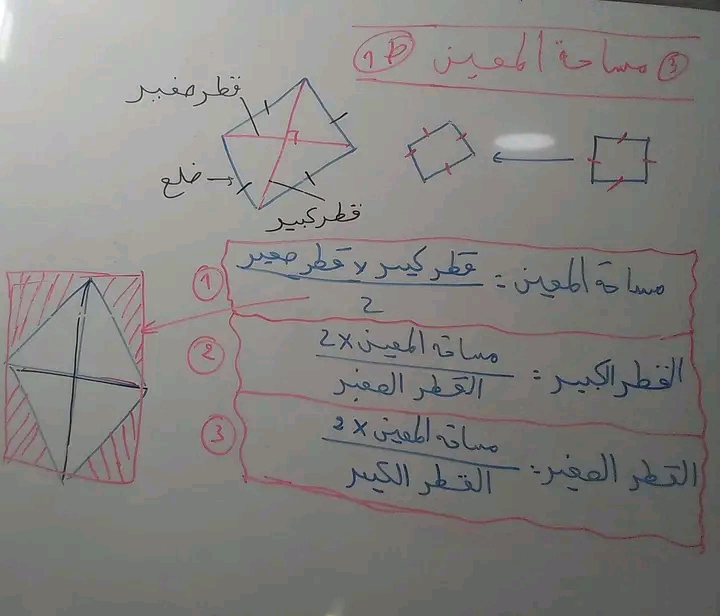 ③ مساحة المعين ط1
قطر صغير
ضلع
قطر كبير
①
مساحة المعين = قطر كبير × قطر صغير
2
②
القطر الكبير = مساحة المعين × 2
القطر الصغير
③
القطر الصغير = مساحة المعين × 2
القطر الكبير